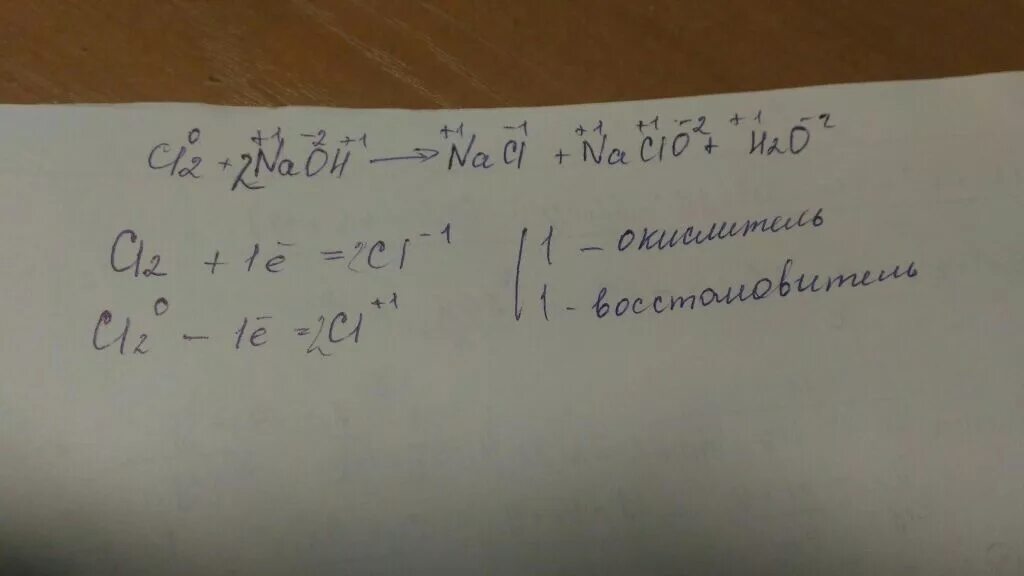 Cl₂⁰ + 2Na⁺¹O⁻²H⁺¹ → Na⁺¹Cl⁻¹ + Na⁺¹Cl⁺¹O⁻² + H₂⁺¹O⁻²
Cl₂ + 1ē = 2Cl⁻¹ | 1 – окислитель
Cl₂⁰ – 1ē = 2Cl⁺¹ | 1 - восстановитель